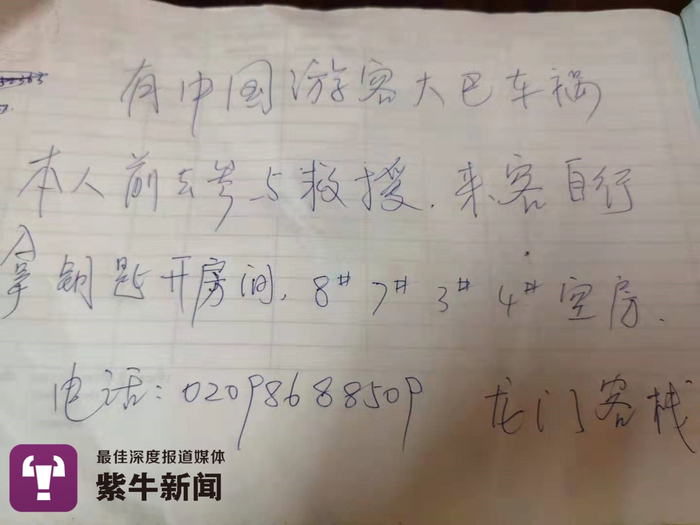 有中国游客大巴车祸
本人前去参与救援.来客自行
拿钥匙开房间, 8# 7# 3# 4# 空房.
电话: 02098688509 龙门客栈
最佳深度报道媒体
紫牛新闻